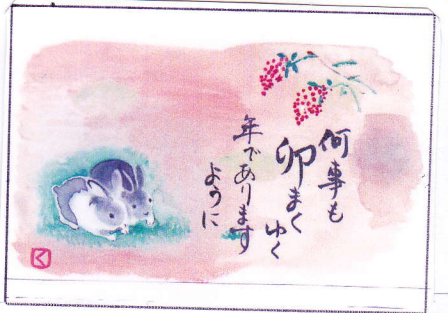 何事も
卯まくゆく
年であります
ように
く